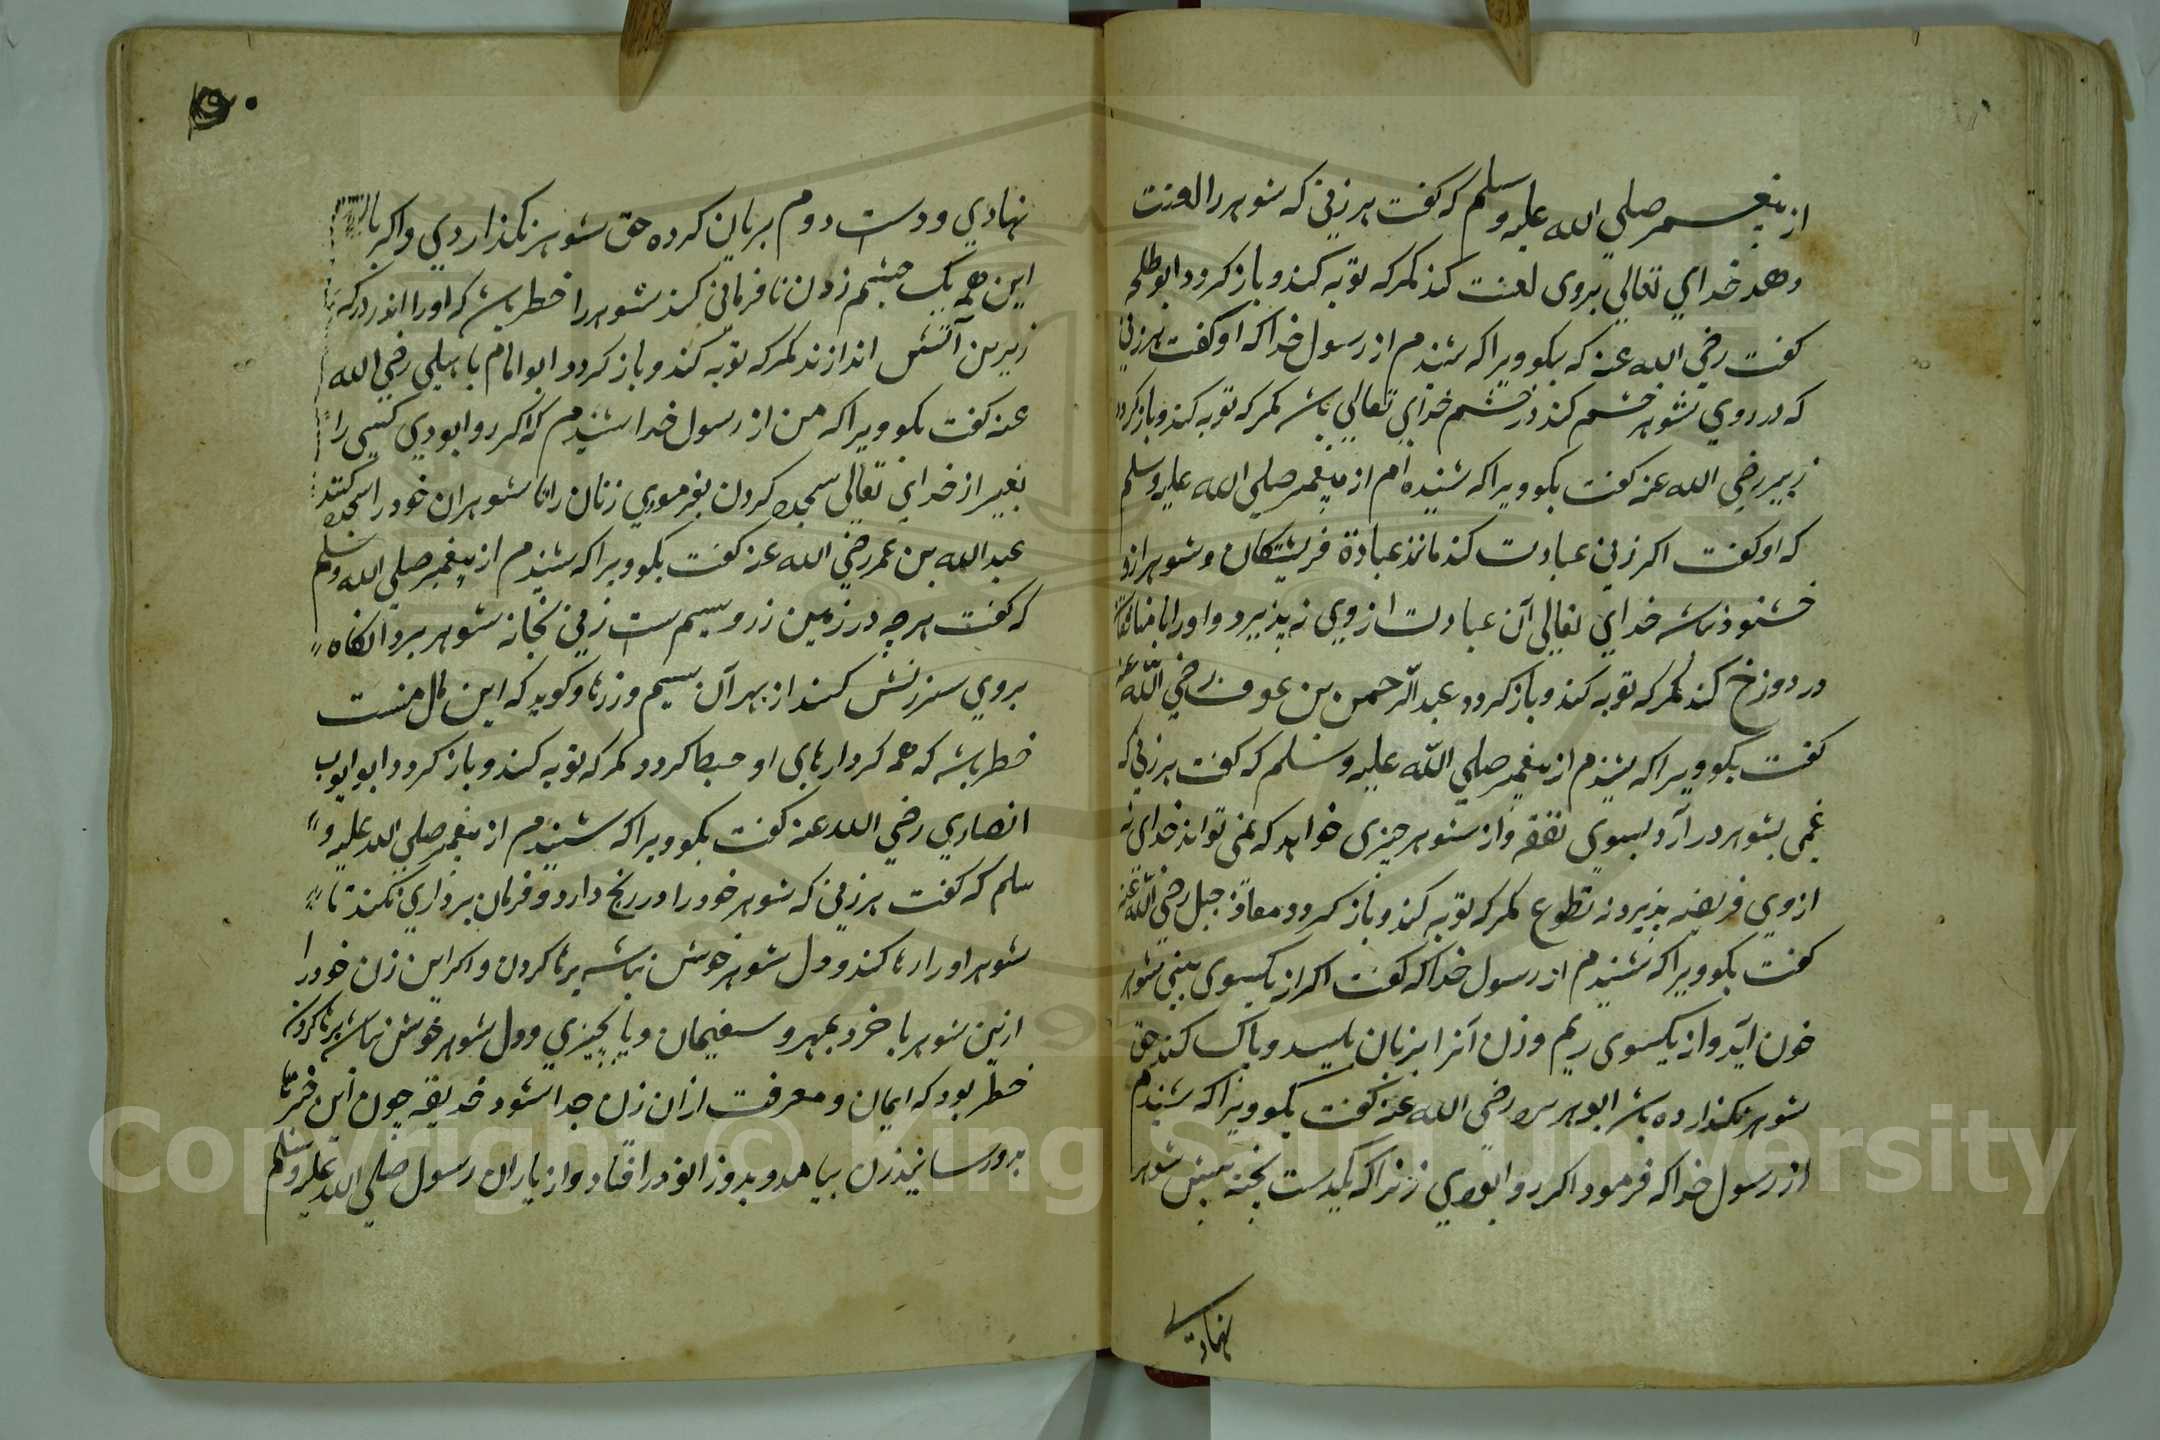 از پیغمبر صلي الله علیه وسلم که کفت هر زنی که شوهر را لعنت
دهد خدای تعالي بروی لعنت کند مکر که توبه کند و باز کردد ابوطلحه
کفت رضي الله عنه که بکو ویرا که شنیدم از رسول خدا که او کفت هر زنی
که در روي شوهر خشم کند در خشم خدای تعالي باشد مکر که توبه کند و باز کردد
زبیر رضي الله عنه کفت بکو ویرا که شنیده ام از پیغمبر صلي الله علیه وسلم
که او کفت اکر زنی عبادت کند مانند عبادة فریشتکان و شوهر ازو
خشنود نباشد خدای تعالي آن عبادت از وي نه پذیرد و اورا با منافقان
در دوزخ کند مکر که توبه کند و باز کردد عبد الرحمن بن عوف رضي الله عنه
کفت بکو ویرا که شنیدم از پیغمبر صلي الله علیه وسلم که کفت هر زنی که
غمی بشوهر در آرد بسوي نفقه و از شوهر چیزی خواهد که نمی تواند خدای نه
از وي فریضه پذیرد نه تطوع مکر که توبه کند و باز کردد معاذ جبل رضي الله عنه
کفت بکو ویرا که شنیدم از رسول خدا که کفت اکر از یکسوی بینی شوهر
خون آید و از یکسوی ریم و زن آنرا بزبان بلیسد و پاک کند حق
شوهر نکذارده باشد ابو هریره رضي الله عنه کفت بکو ویرا که شنیدم
از رسول خدا که فرمود اکر روا بودي زنرا که یکدست پخته پیش شوهر
نهادي
نهادي و دست دوم بریان کرده حق شوهر نکذاردي و اکر با
این همه یک چشم زدن نا فرمانی کند شوهر را خطر باشد که اورا اندر درکه
زیرین آتش اندازند مکر که توبه کند و باز کردد ابو امام باهلي رضي الله
عنه کفت بکو ویرا که من از رسول خدا شنیدم که اکر روا بودي کسی را
بغیر از خداي تعالی سجده کردن بفرمودي زنان را تا شوهران خود را سجده کنند
عبد الله بن عمر رضي الله عنه کفت بکو ویرا که شنیدم از پیغمبر صلي الله وسلم
که کفت هر چه در زمین زر و سیم ست زنی بخانه شوهر برد آنکاه
بروي سرزنش کند از بهر آن سیم و زرها و کوید که این مال منست
خطر باشد که همه کردارهای او حبطا کردد مکر که توبه کند و باز کردد ابو ایوب
انصاري رضي الله عنه کفت بکو ویرا که شنیدم از پیغمبر صلي الله علیه و
سلم که کفت هر زنی که شوهر خود را در رنج دارد و فرمان برداري نکند تا
شوهر اورا رها کند و دل شوهر خوش نباشد برها کردن و اکر این زن خود را
ازین شوهر باخرد بمهر و سفیحان و یا بچیزي و دل شوهر خوش نباشد برها کردن
خطر بود که ایمان و معرفت از ان زن جدا شود خدیقه چون این خبرها
بدو رسانید زن بیامد و بدو زانو در افتاد و از یاران رسول صلي الله علیه وسلم
Copyright © King Saud University